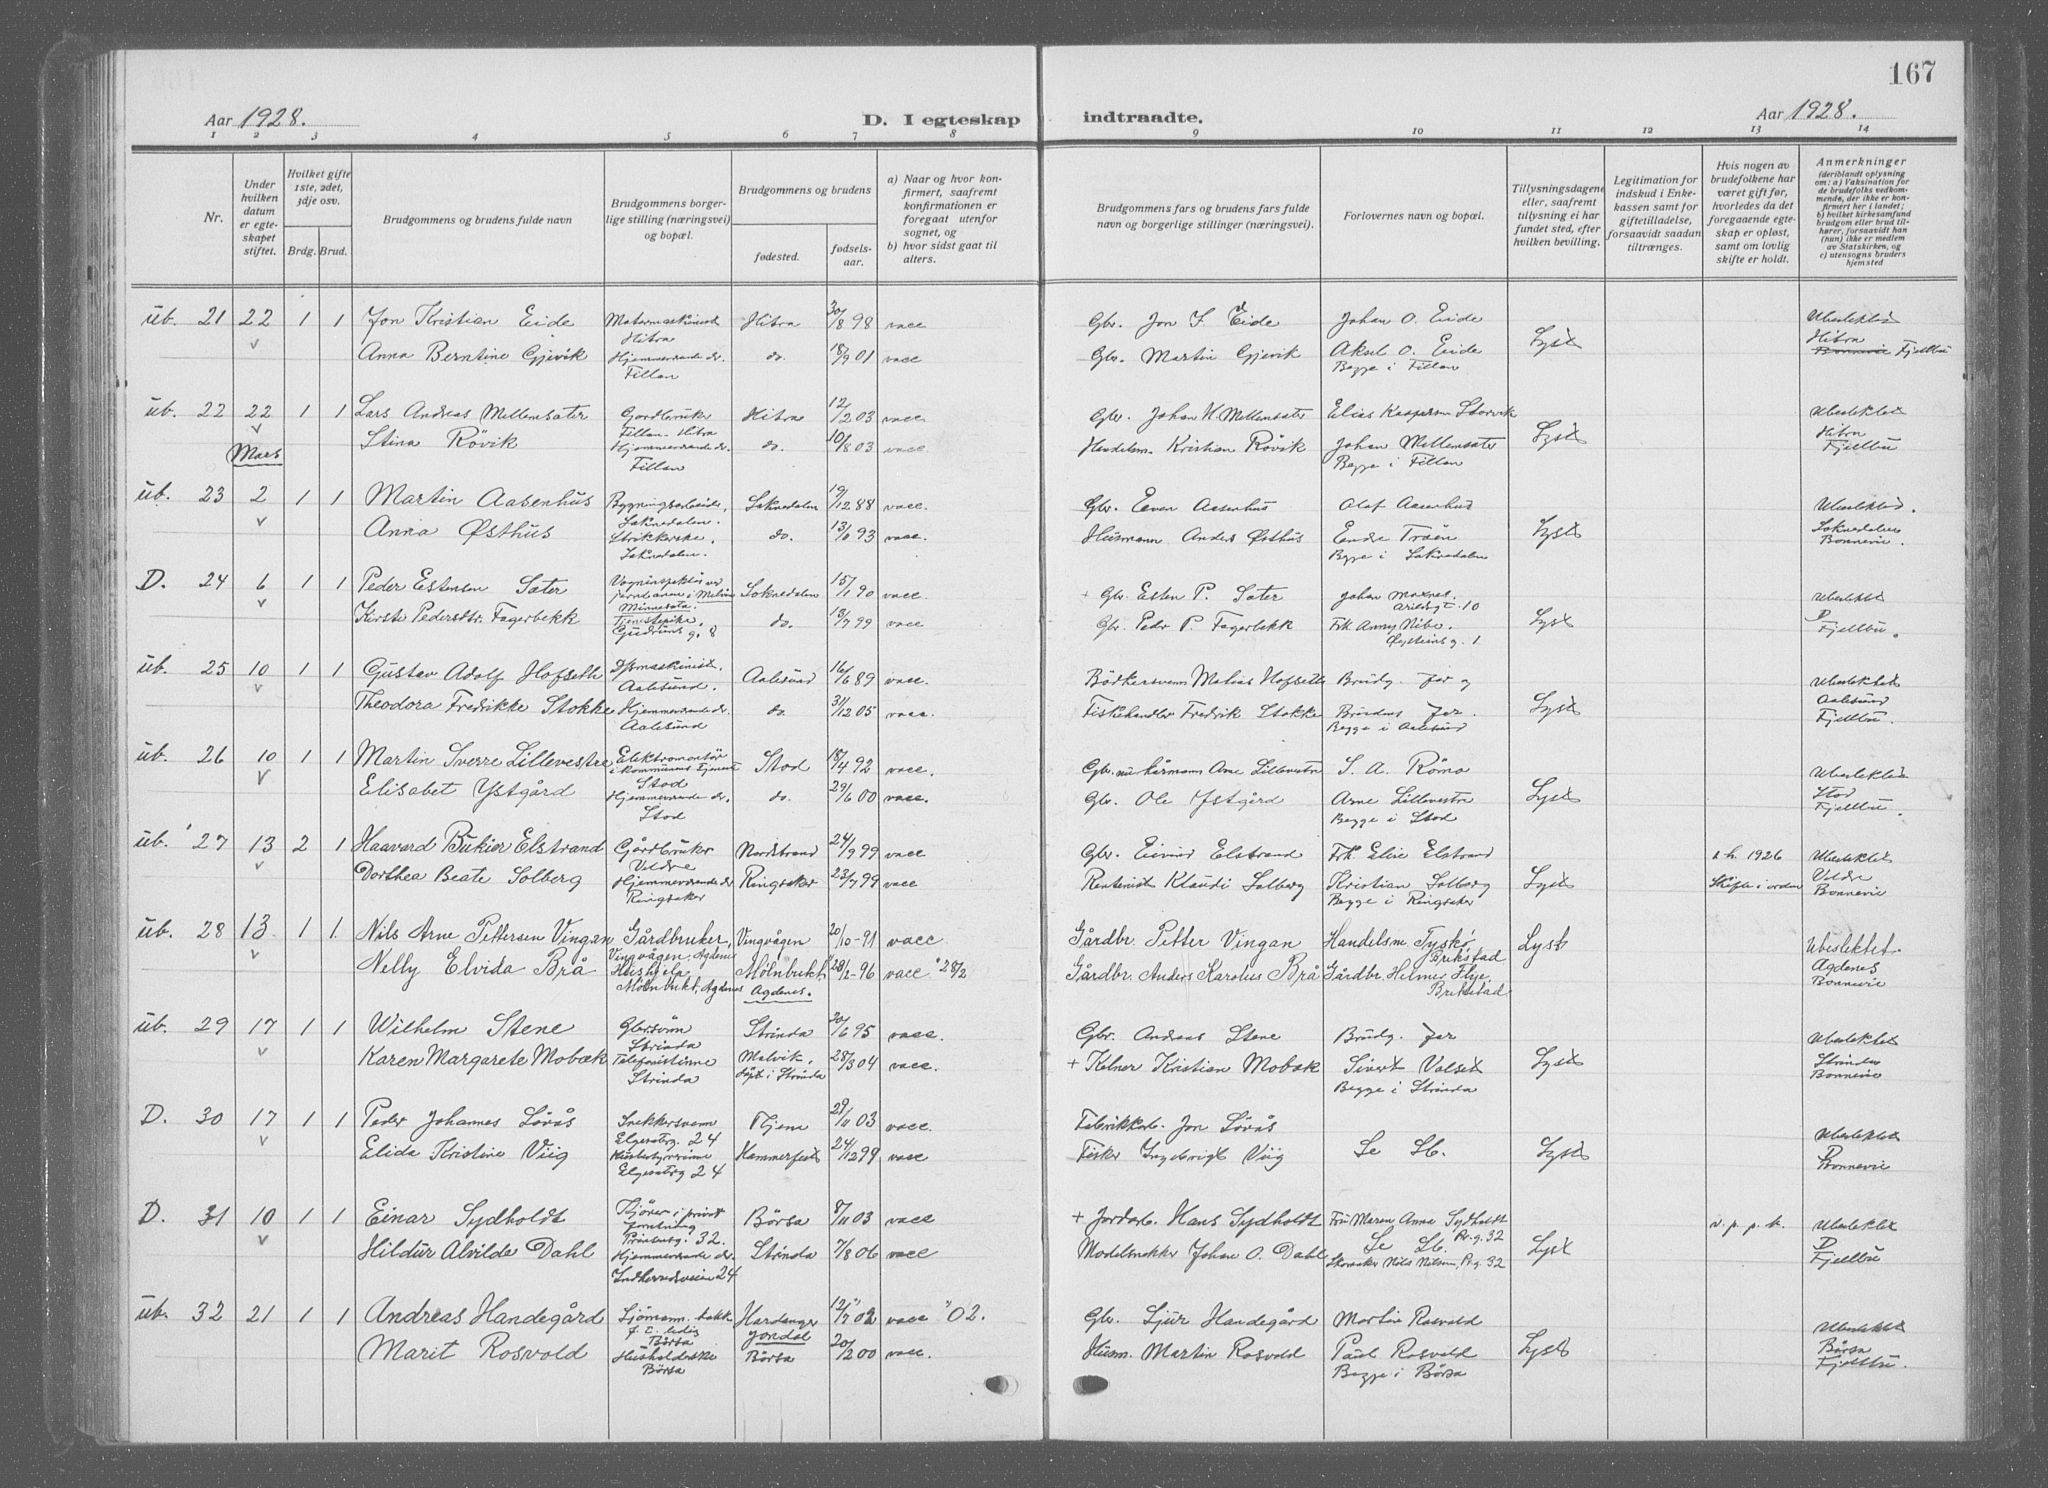 167
Aar 1928.
D. I egteskap
indtraadte.
Aar 1928.
1 2 3 4 5 6 7 8 9 10 11 12 13 14
Nr.
Under hvilken datum er egteskapet stiftet.
Hvilket gifte 1ste, 2det, 3dje osv.
Brdg. Brud.
Brudgommens og brudens fulde navn
Brudgommens borgerlige stilling (næringsvei) og bopæl.
Brudgommens og brudens
fødested.
fødselsaar.
a) Naar og hvor konfirmert, saafremt konfirmationen er foregaat utenfor sognet, og
b) hvor sidst gaat til alters.
Brudgommens fars og brudens fars fulde navn og borgerlige stillinger (næringsvei).
Forlovernes navn og bopæl.
Tillysningsdagene eller, saafremt tillysning ei har fundet sted, efter hvilken bevilling.
Legitimation for indskud i Enkekassen samt for giftetilladelse, forsaavidt saadan tiltrænges.
Hvis nogen av brudefolkene har været gift før, hvorledes da det foregaaende egteskap er opløst, samt om lovlig skifte er holdt.
Anmerkninger
(deriblandt oplysning om: a) Vaksination for de brudefolks vedkommende, der ikke er konfirmert her i landet; b) hvilket kirkesamfund brudgom eller brud tilhører, forsaavidt han (hun) ikke er medlem av Statskirken, og c) utensogns bruders hjemsted
üb. 21 22 1 1 Jon Kristian Eide Motormaskinist Hitra 30/8 98 vacc Gbr. Jon F. Eide Johan O. Eide Lyst Ubeslektet
Hitra Hitra
Anna Berntine Gjevik Hjemmeværende dr. do. 18/9 01 vacc Gbr. Martin Gjevik Aksel O. Eide Bonnevie Fjellbu
Fillan Begge i Fillan
üb. 22 22 1 1 Lars Andreas Mellemsæter Gårdbruker Hitra 12/2 03 vacc Gbr. Johan H. Mellemsæter Elias Kaspersen Storvik Lyst Ubeslektet
Fillan Hitra Hitra
Stina Rövik Hjemmeværende dr. do. 10/8 03 vacc Handelsm. Kristian Rövik Johan Mellemsæter Fjellbu
Mars Fillan Begge i Fillan
üb. 23 2 1 1 Martin Aasenhus Bygningsarbeider, Soknedalen 19/12 88 vacc. Gbr. Even Aasenhus Olaf Aasenhus Lyst Ubeslektet.
Soknedalen. Soknedalen
Anna Østhus Strikkerske, do. 13/6 93 vacc. Husmann Anders Østhus Endre Tröen Bonnevie.
Soknedalen. Begge i Soknedalen
D. 24 6 1 1 Peder Estensen Sæter Vogninspektör ved Soknedalen 15/1 90 vacc. + Gbr. Esten P. Sæter Johan Moxnes, Lyst Ubeslektet
jernbanen i Minnesota. Arildsgt. 10 D
Kirsti Pedersdtr. Fagerbekk Tjenestepike, do. 13/7 99 vacc Gbr. Peder P. Fagerbekk Frk. Anny Nibe. Fjellbu.
Gudruns g. 8 Øysteins g. 1
üb. 25 10 1 1 Gustav Adolf Hofseth D/Smaskinist, Aalesund 16/6 89 vacc. Bödkersvenn Matias Hofseth Brudg. far og Lyst Ubeslektet
Aalesund. Aalesund
Theodora Fredrikke Stokke Hjemmeværende dr. do. 31/12 05 vacc. Fiskehandler Fredrik Stokke Brudens far. Fjellbu.
Aalesund Begge i Aalesund
üb. 26 10 1 1 Martin Sverre Lillevestre Elektromontör Stod 18/4 92 vacc. Gbr. Arne Lillevestre S. A. Römo Lyst Ubeslektet
i kommunens tjeneste Stod Stod
Elisabet Ystgård Hjemmeværende dr. do. 29/6 00 vacc. Gbr. Ole Ystgård Arne Lillevestre Fjellbu
Stod Begge i Stod
üb. 27 13 2 1 Haavard Bukier Elstrand Gårdbruker Nordstrand 24/9 99 vacc Gbr. Eivind Elstrand Frk. Elise Elstrand Lyst s.h. 1926 Ubeslektet
Veldre Veldre
Dorthea Beate Solberg Hjemmeværende dr Ringsaker 23/7 99 vacc Rentenist Klaudi Solberg Kristian Solberg Skifte i orden Bonnevie
Ringsaker Begge i Ringsaker
üb. 28 13 1 1. Nils Arne Pettersen Vingan Gårdbruker, Vingvågen 20/10-91 vacc Gårdbr. Petter Vingan Handelsm. Tyskö Lyst Ubeslektet.
Vingvågen, Agdenes Brekstad Agdenes
Nelly Elvida Brå Hushjelp Mölnbukt 28/2-96 vacc "28/2 Gårdbr. Anders Karolus Brå Gårdbr. Helmer Flye, Bonnevie
Mölnbukt, Agdenes Agdenes. Brekstad
üb. 29 17 1 1 Wilhelm Stene Gbr.sönn Strinda 30/6 95 vacc. Gbr. Andreas Stene Brudg. far Lyst Ubeslektet
Strinda Strinda
Karen Margarete Mobæk Telefonistinne Malvik, 28/3 04 vacc. + Kelner Kristian Mobæk Sivert Valset Bonnevie
Strinda döpt i Strinda Begge i Strinda
D. 30 17 1 1 Peder Johannes Sörås Snekkersvenn Fljem 29/11 03 vacc. Fabrikkarb. Jon Sörås Lyst Ubeslektet
Elgesetrg. 24 D
Elida Kristine Viig Hammerfest 24/12 99 vacc Fisker Ingebrigt Viig Se Lb. Bonnevie
Elgesetrg 24
D. 31 10 1 1 Einar Sydholdt Kjörer i privat Börsa 8/11 03 vacc + Jordarb. Hans Sydholdt Fru Maren Anna Sydholdt Lyst v. p. p. b. Ubeslektet
forretning Pr. g. 32 D
32. Se Lb.
Hildur Alvilde Dahl Hjemmeværende dr. Strinda 7/8 06 vacc Modelsnekker Johan O. Dahl Skomaker Nils Nilsen, Pr. g. 32 Fjellbu
Indherredsveien 24
üb. 32 21 1 1 Andreas Handegård Sjömann. Hardanger 12/7 02 vacc "02. Gbr. Sjur Handegård Martin Rosvold Lyst Ubeslektet
f. t. ledig Jondal Börsa
Börsa
Marit Rosvold Husholderske Börsa 20/2 00 vacc. Husm. Martin Rosvold Paul Rosvold Fjellbu.
Börsa Begge i Börsa